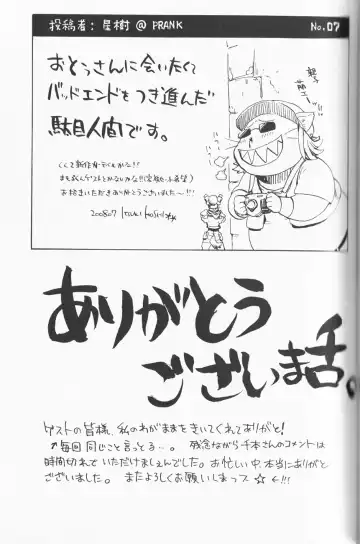 投稿者：星樹 @ PRANK No.07
おとっさんに会いたくて
バッドエンドをつき進んだ
駄目人間です。
お招きいただきありがとうございました〜!!!
200807
ありがとう
ございま話。
ゲストの皆様、私のわがままをきいてくれてありがと!
↑毎回同じこと言っとる…。 残念ながら千本さんのコメントは
時間切れでいただけましぇんでした。お忙しい中、本当にありがと
ございました。 またよろしくお願いしまっス ☆ ←!!!